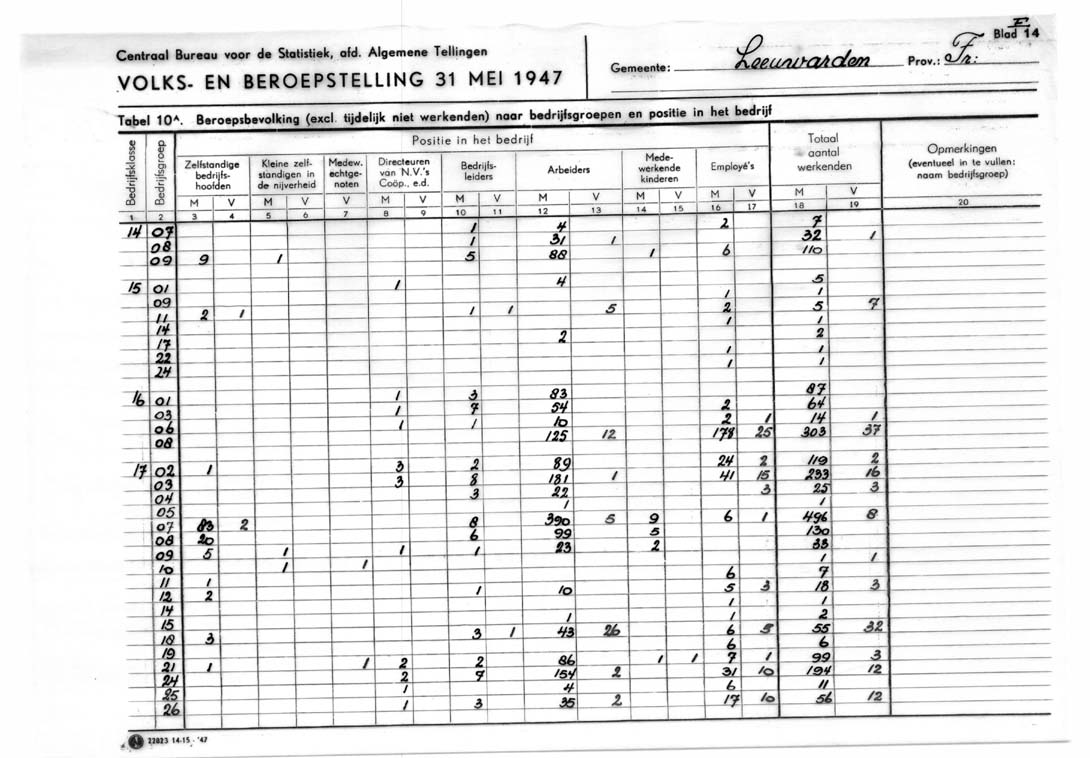 F
Blad 14
Centraal Bureau voor de Statistiek, afd. Algemene Tellingen
VOLKS- EN BEROEPSTELLING 31 MEI 1947
Gemeente: Leeuwarden Prov.: Fr:
Tabel 10A. Beroepsbevolking (excl. tijdelijk niet werkenden) naar bedrijfsgroepen en positie in het bedrijf
Bedrijfsklasse
Bedrijfsgroep
Positie in het bedrijf
Zelfstandige bedrijfs-hoofden
Kleine zelf-standigen in de nijverheid
Medew. echtge-noten
Directeuren van N.V.'s Coöp., e.d.
Bedrijfs-leiders
Arbeiders
Mede-werkende kinderen
Employé's
Totaal aantal werkenden
Opmerkingen (eventueel in te vullen: naam bedrijfsgroep)
M V M V V M V M V M V M V M V M V
1 2 3 4 5 6 7 8 9 10 11 12 13 14 15 16 17 18 19 20
14 07 1 4 2 7
08 1 31 1 32 1
09 9 1 5 88 1 6 110
15 01 1 4 5
09 1 1
11 2 1 1 1 5 2 5 7
14 1 1
17 2 2
22 1 1
24 1 1
16 01 1 3 83 87
03 1 7 54 2 64
06 1 1 10 2 1 14 1
08 125 12 178 25 303 37
17 02 1 3 2 89 24 2 119 2
03 3 8 181 1 41 15 233 16
04 3 22 3 25 3
05 1 1
07 83 2 8 390 5 9 6 1 496 8
08 20 6 99 5 130
09 5 1 1 1 23 2 33
10 1 1 1 1
11 1 6 7
12 2 1 10 5 3 18 3
14 1 1
15 1 1 2
18 3 3 1 43 26 6 5 55 32
19 6 6
21 1 1 2 2 86 1 1 7 1 99 3
24 2 7 154 2 31 10 194 12
25 1 4 6 11
26 1 3 35 2 17 10 56 12
22823 14-15 - '47